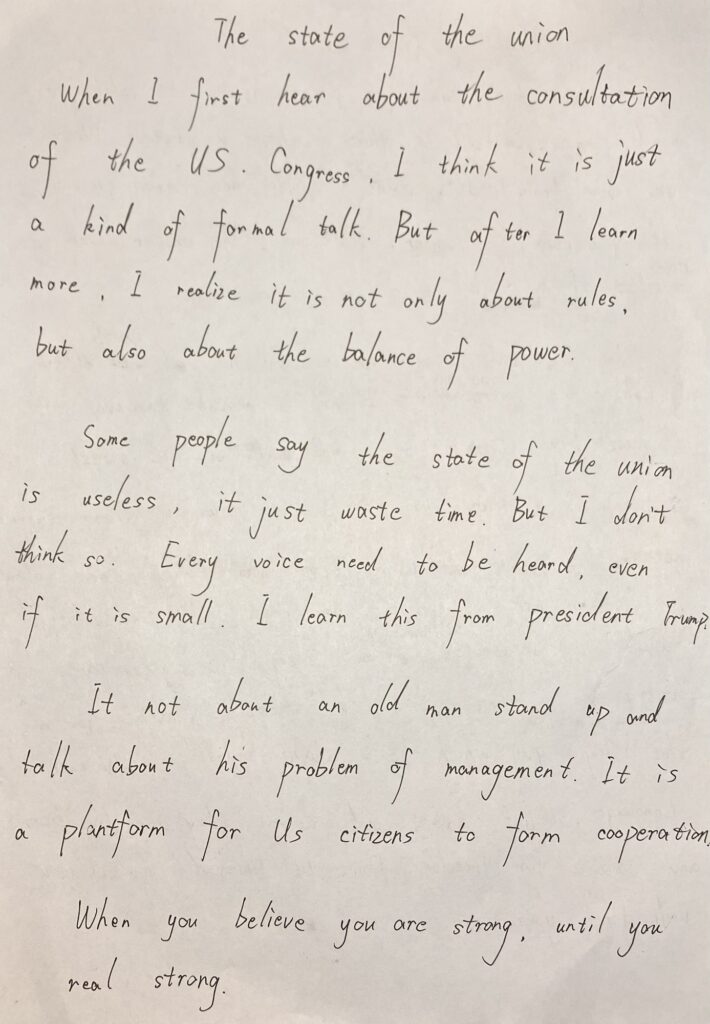 The state of the union
When I first hear about the consultation
of the US. Congress, I think it is just
a kind of formal talk. But after I learn
more, I realize it is not only about rules,
but also about the balance of power.
Some people say the state of the union
is useless, it just waste time. But I don't
think so. Every voice need to be heard, even
if it is small. I learn this from president Trump.
It not about an old man stand up and
talk about his problem of management. It is
a plantform for Us citizens to form cooperation.
When you believe you are strong, until you
real strong.